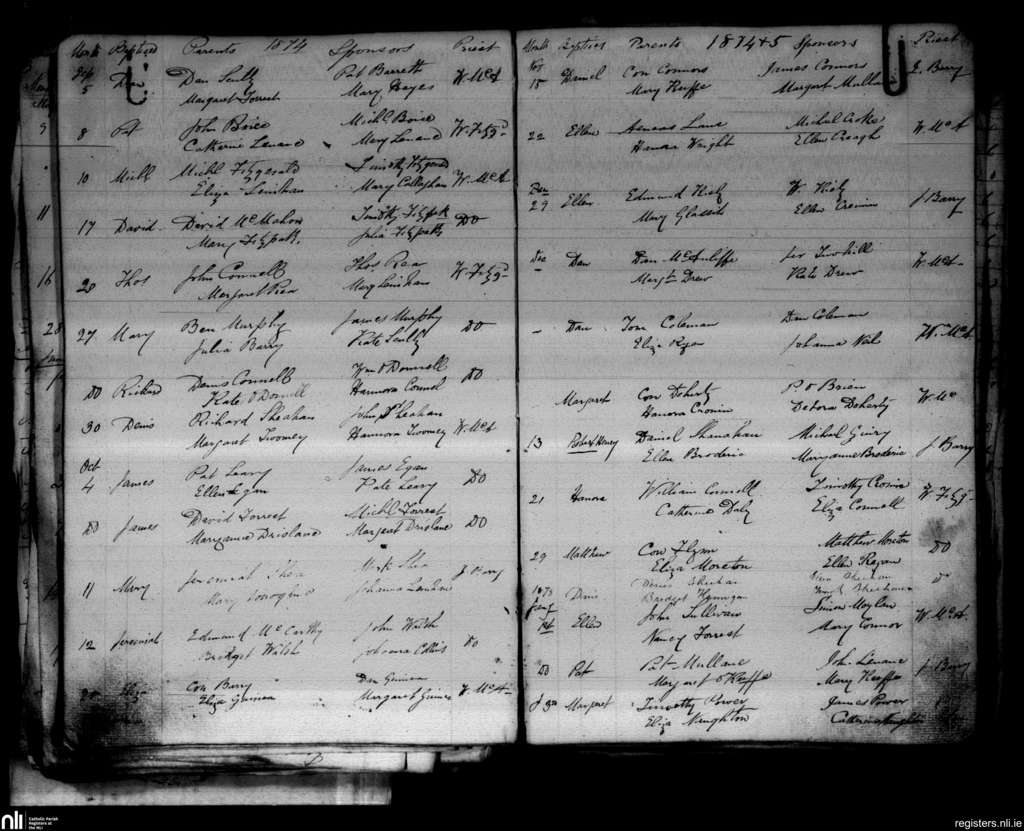 Month Baptised Parents 1874 Sponsors Priest
5 Dan Dan Scully Pat Barrett W. McA
Margaret Forrest Mary Hayes
8 Pat John Brice Michl Brice W. Fitzg
Catherine Lenane Mary Lenane
10 Michl Michl Fitzgerald Timothy Fitzgerald
Eliza Lenihan Mary Callaghan W. McA
17 David David McMahon Timothy Fitzpk Do
Mary Fitzpatk. Julia Fitzpatk
20 Thos John Connell Thos Rea W. Fitzg
Margaret Rea Mary Lenihan
27 Mary Ben Murphy James Murphy Do
Julia Barry Kate Scully
Do Richard Denis Connell Wm O Donnell Do
Kate O Donnell Hannora Connel
30 Denis Richard Sheahan John Sheahan
Margaret Twomey Hannora Twomey W. McA
Oct
4 James Pat Leary James Egan Do
Ellen Egan Kate Leary
Do James David Forrest Michl Forrest Do
Maryanne Drislane Margaret Drislane
11 Mary Jeremiah Shea Shea J Barry
Mary Johanna
12 Jeremiah Edmund McCarthy John Walsh Do
Bridget Walsh Johanna Collins
Eliza Con Barry Dan Guinea W. McA
Eliza Guinea Margaret Guinea
Month Baptised Parents 1874+5 Sponsors Priest
Nov
15 Daniel Con Connors James Connors J. Barry
Mary Keeffe Margaret Mullane
22 Ellen Aeneas Lane Michael Cooke W. McA
Wright Ellen Creagh
Dec
29 Ellen Edmund W. J Barry
Mary Glassit Ellen Cronin
Dec Dan Dan McAuliffe Jer Twohill W. McA
Margt Drew Kate Drew
Dan Tom Coleman Dan Coleman W. McA
Eliza Ryan Johanna
Margaret Con Doherty P. O Brien W. Mc
Hanora Cronin Debora Doherty
13 Robert Henry Daniel Shanahan Michael Guiry J Barry
Ellen Broderic Maryanne Broderic
21 Hanora William Connell Timothy Cronin W. Fitzg
Catherine Daly Eliza Connell
29 Matthew Con Flynn Matthew Moreton Do
Eliza Moreton Ellen Regan
1875 Denis Denis Sheehan Sheehan Do
Jany Bridget Hannigan Sheehan
1st Ellen John Sullivan Simon Moylan W. McA.
Nancy Forrest Mary Connor
Do Pat Pat Mullane Joh. Lenane J Barry
Margaret O Keeffe Mary Keeffe
3rd Margaret Timothy Power James Power
Eliza Naughton Catherine Naughton
nli Catholic Parish
Registers at
the NLI
registers.nli.ie